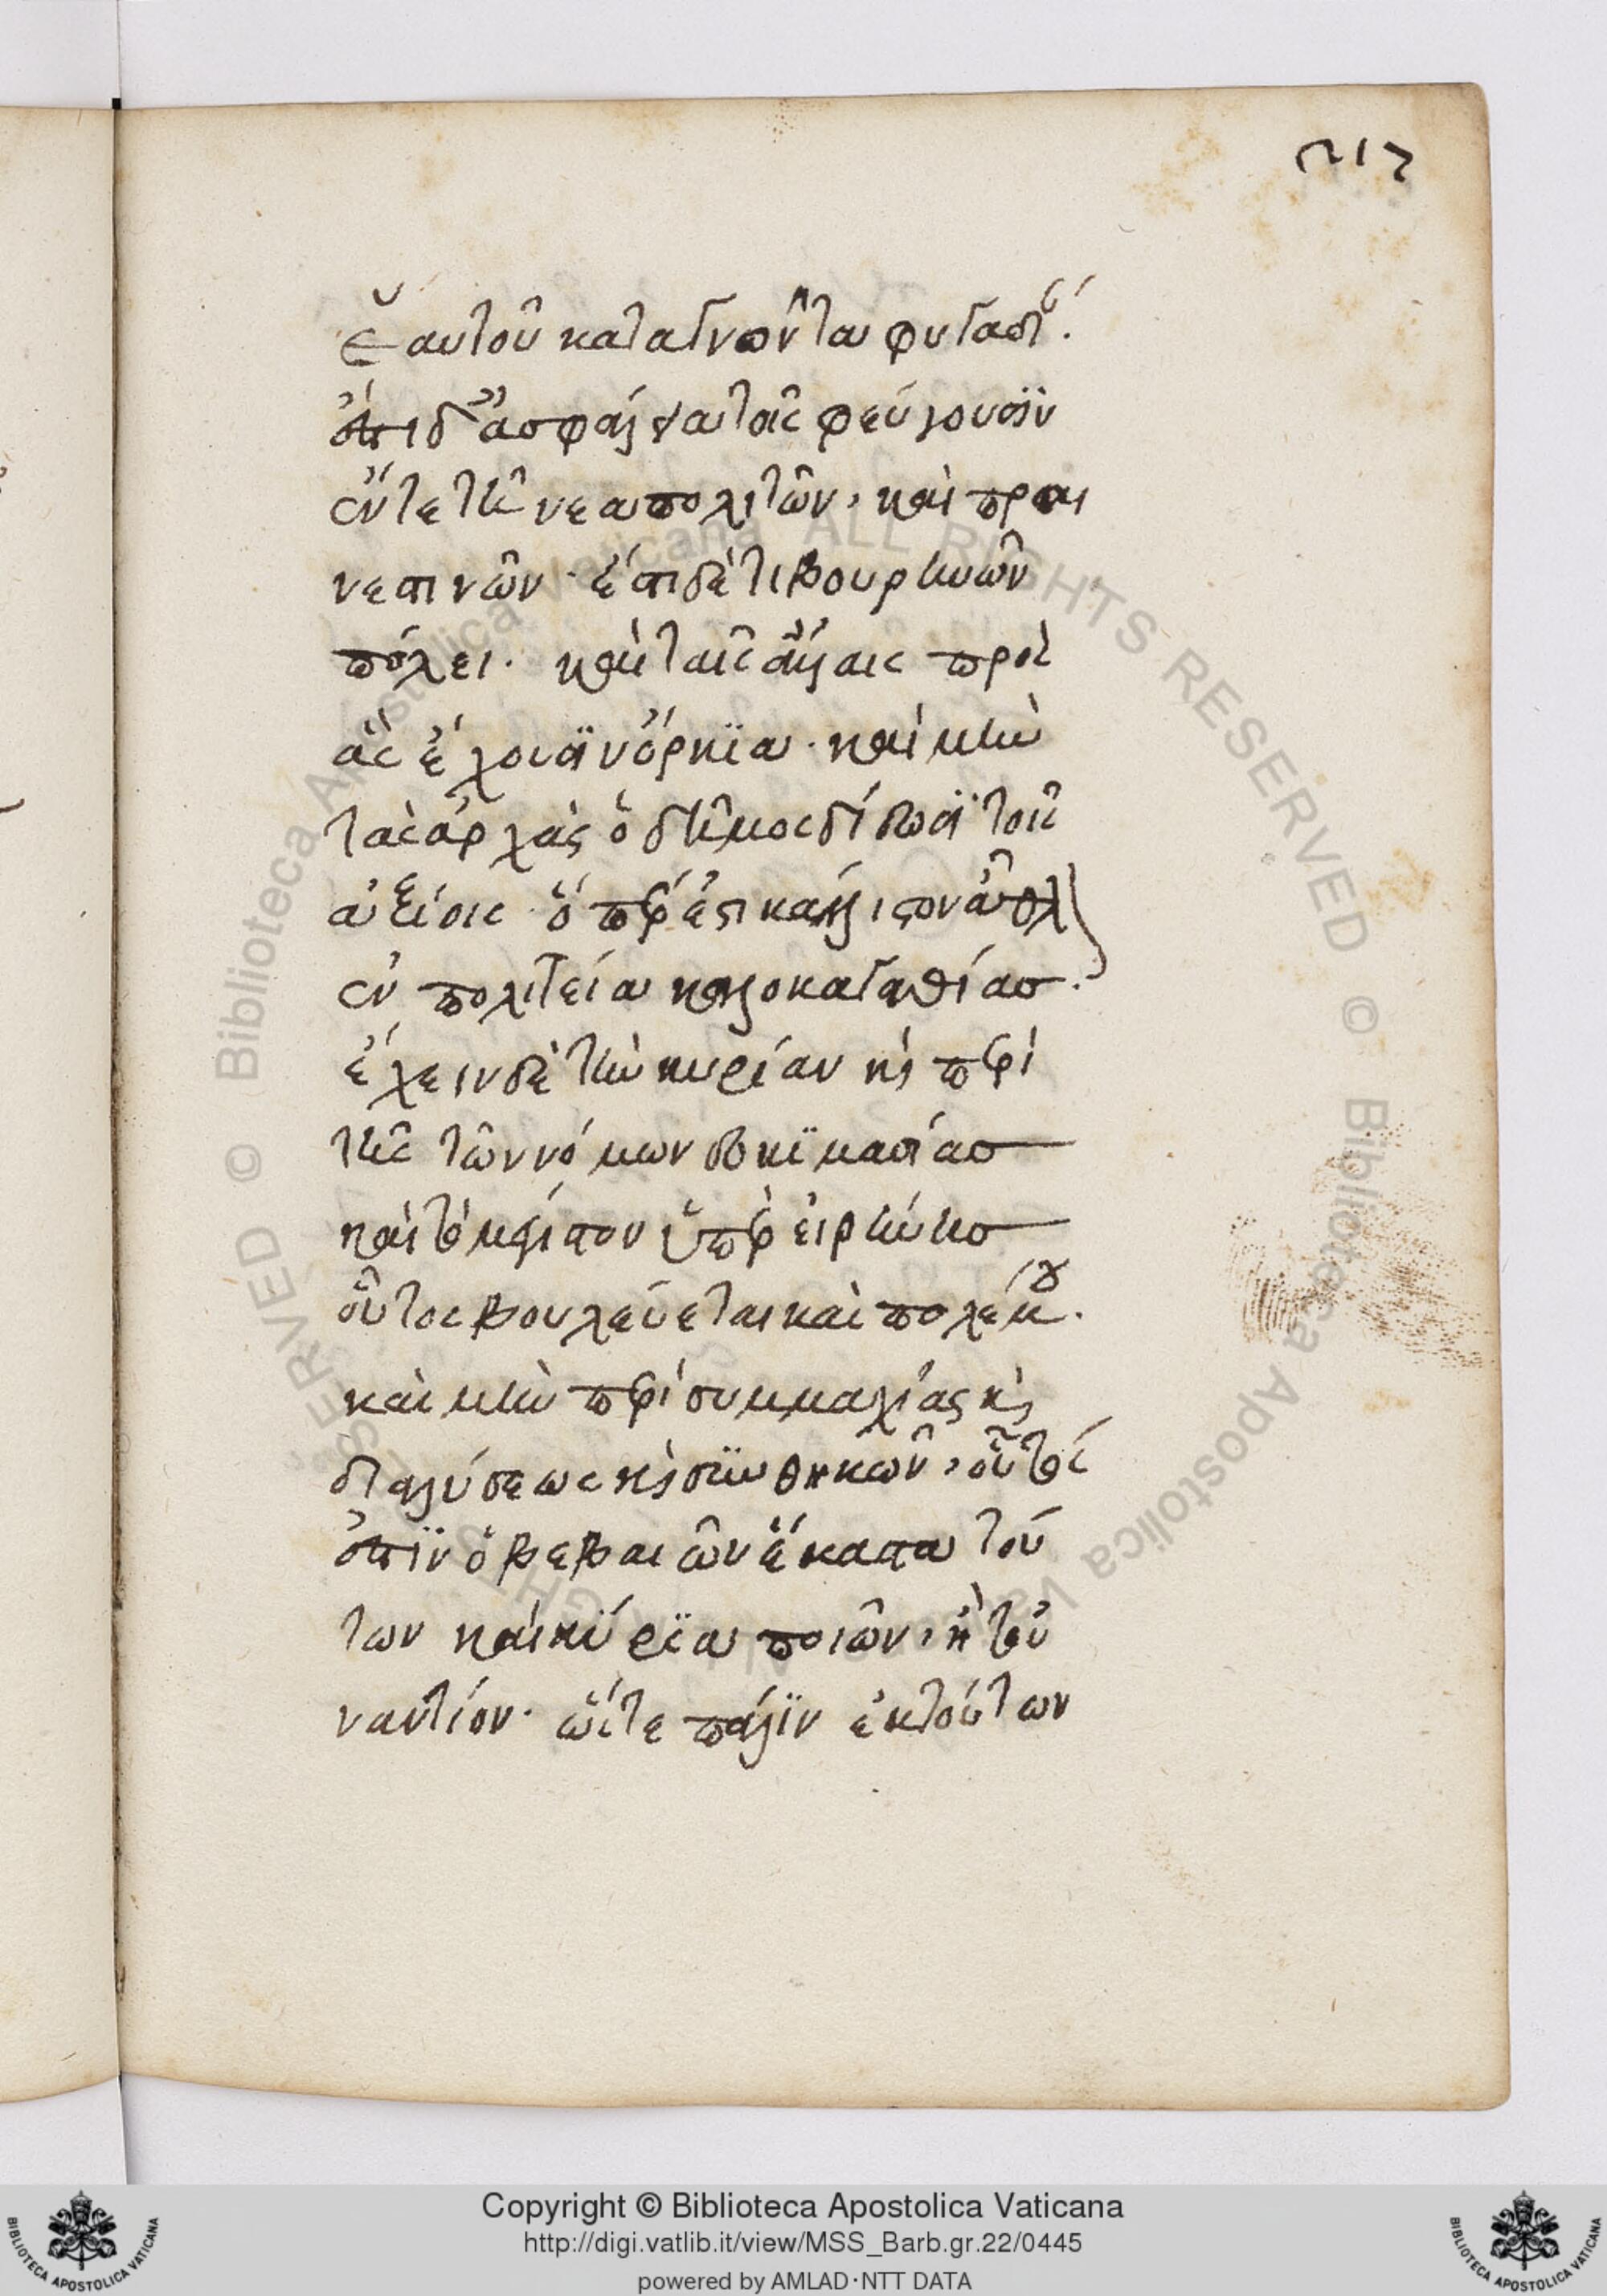 217
ἑαυτοῦ καταγνόντα φυγαδείαν.
ἔστι δ' ἀσφάλεια τοῖς φεύγουσϊν
ἔν τε τῇ νεαπολιτῶν, καὶ πραι
νεστινῶν· ἔτι δὲ τιβουρηνῶν
πόλει· καὶ ταῖς ἄλλαις πρὸς
ἃς ἔχουσϊν ὅρκϊα· καὶ μὴν
τὰς ἀρχὰς ὁ δῆμος δίδωσϊ τοῖς
ἀξίοις· ὅπερ ἐστὶ κάλλιστον ἆθλον
ἐν πολιτεία καλοκαγαθίασ.
ἔχει δὲ τὴν κυρίαν καὶ περὶ
τῆς τῶν νόμων δοκϊμασίασ
καὶ τὸ μέγιστον ὑπὲρ εἰρήνησ
οὗτος βουλεύεται καὶ πολέμου.
καὶ μὴν περὶ συμμαχίας καὶ
διαλύσεως καὶ συνθηκῶν, οὗτός
ἐστϊν ὁ βεβαιῶν ἕκαστα τού
των καὶ κύρϊα ποιῶν, ἢ τοὐ
ναντίον· ὥστε πάλϊν ἐκ τούτων
Copyright © Biblioteca Apostolica Vaticana
http://digi.vatlib.it/view/MSS_Barb.gr.22/0445
powered by AMLAD·NTT DATA